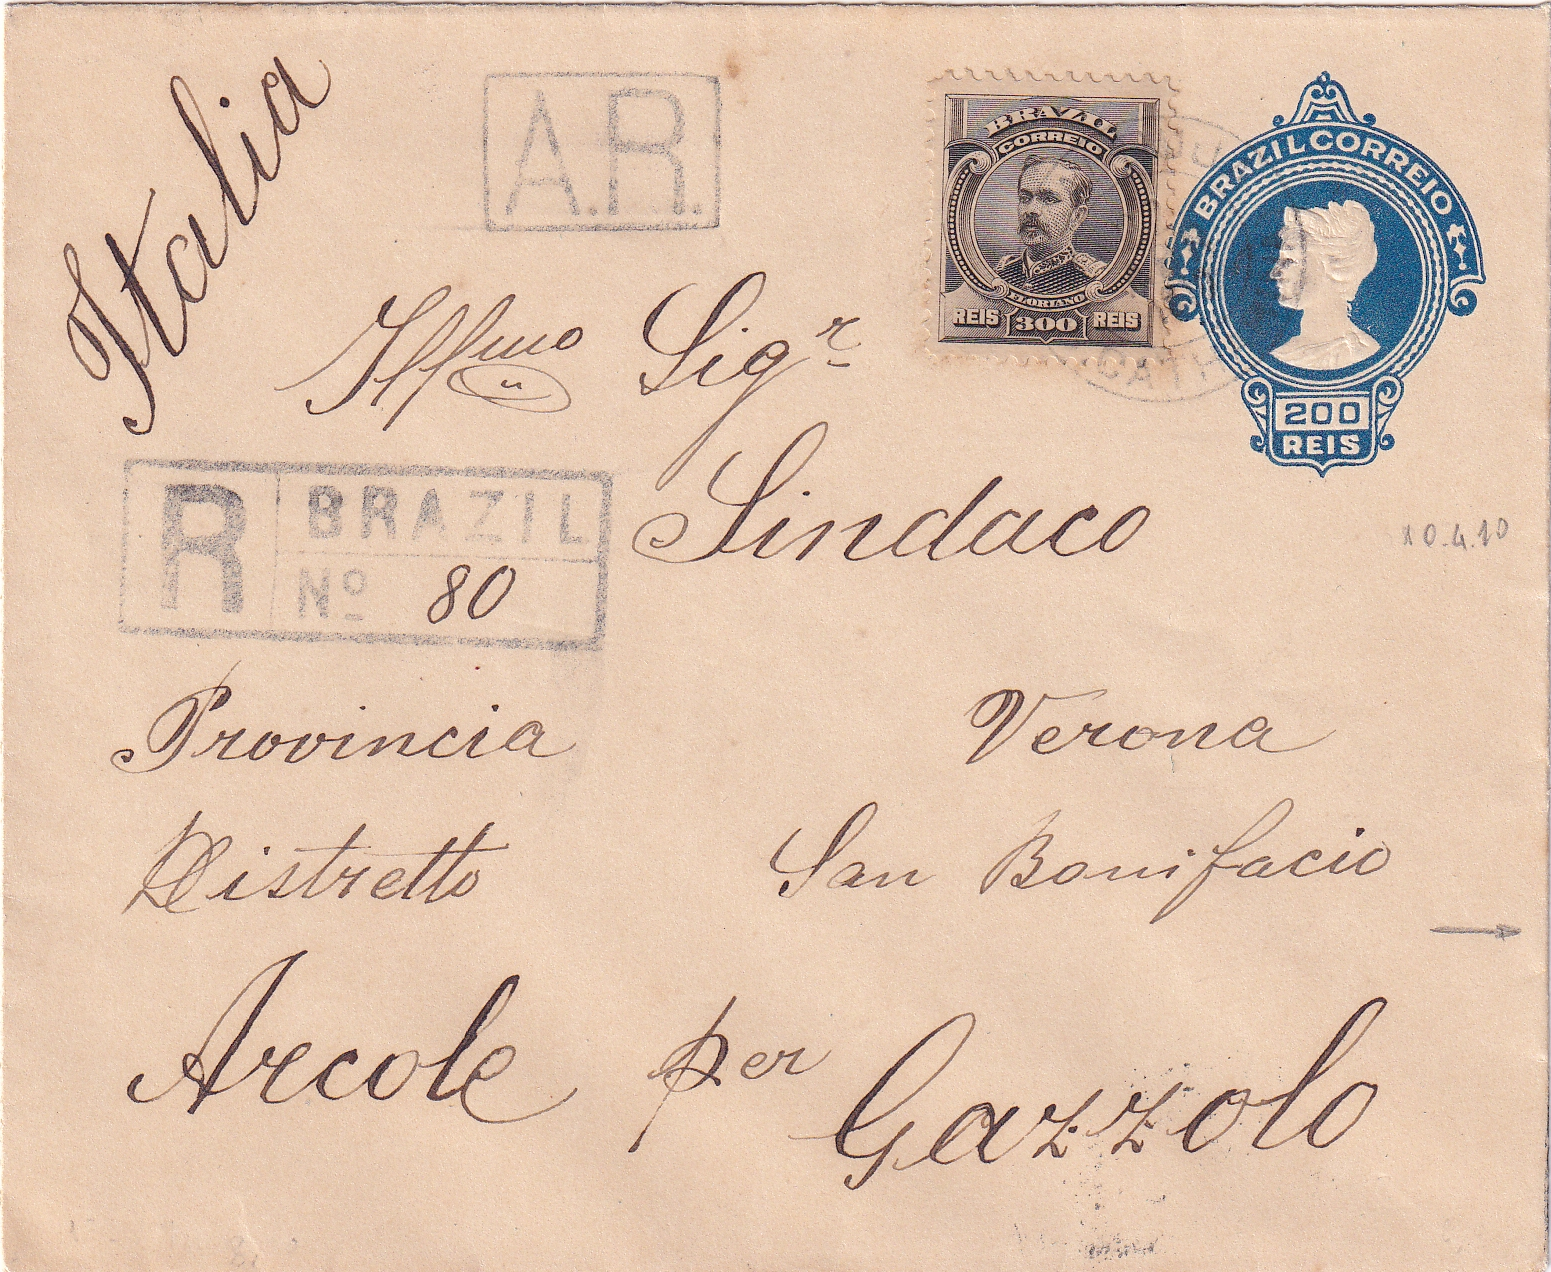 Italia
A.R.
BRAZIL
CORREIO
FLORIANO
REIS 300 REIS
BRAZIL CORREIO
200
REIS
Illmo Sigr
Sindaco
R BRAZIL
Nº 80
Provincia Verona
Distretto San Bonifacio
Arcole per Gazzolo